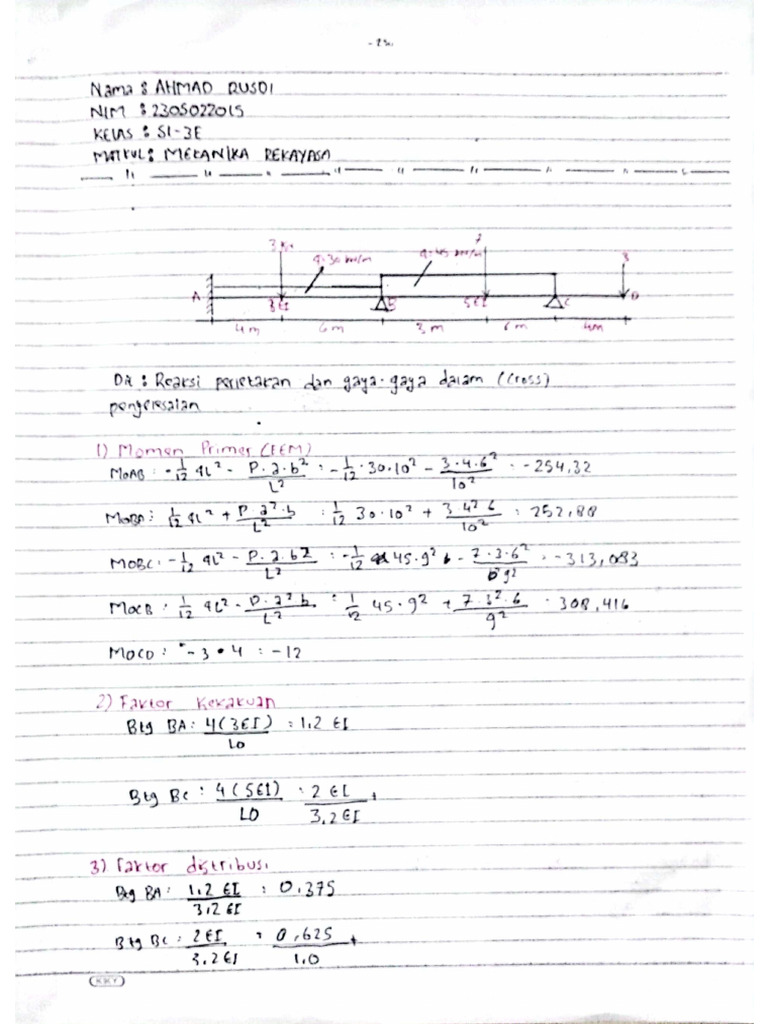 Nama : AHMAD RUSDI
NIM : 2305022015
KELAS : SI-3E
MATKUL : MEKANIKA REKAYASA
3 kN q=30 kN/m q=45 kN/m 7 3
A 3EI B 5EI C D
4 m 6 m 3 m 6 m 4m
Dit : Reaksi perletakan dan gaya-gaya dalam (Cross)
penyelesaian
1) Momen Primer (FEM)
MOAB : -1/12 qL² - P.a.b²/L² : -1/12 . 30.10² - 3.4.6²/10² : -254,32
MOBA : 1/12 qL² + P.a².b/L² : 1/12 30.10² + 3 4² 6/10² : 252,88
MOBC : -1/12 qL² - P.a.b²/L² : -1/12 45.9² - 7.3.6²/9² : -313,083
MOCB : 1/12 qL² - P.a²b/L² : 1/12 45.9² + 7.3².6/9² : 308,416
MOCD : -3 . 4 : -12
2) Faktor Kekakuan
Btg BA : 4(3EI)/10 : 1,2 EI
Btg BC : 4(5EI)/10 : 2 EI +
3,2 EI
3) Faktor distribusi
Btg BA : 1,2 EI/3,2 EI : 0,375
Btg BC : 2EI/3,2EI : 0,625 +
1.0
KKY